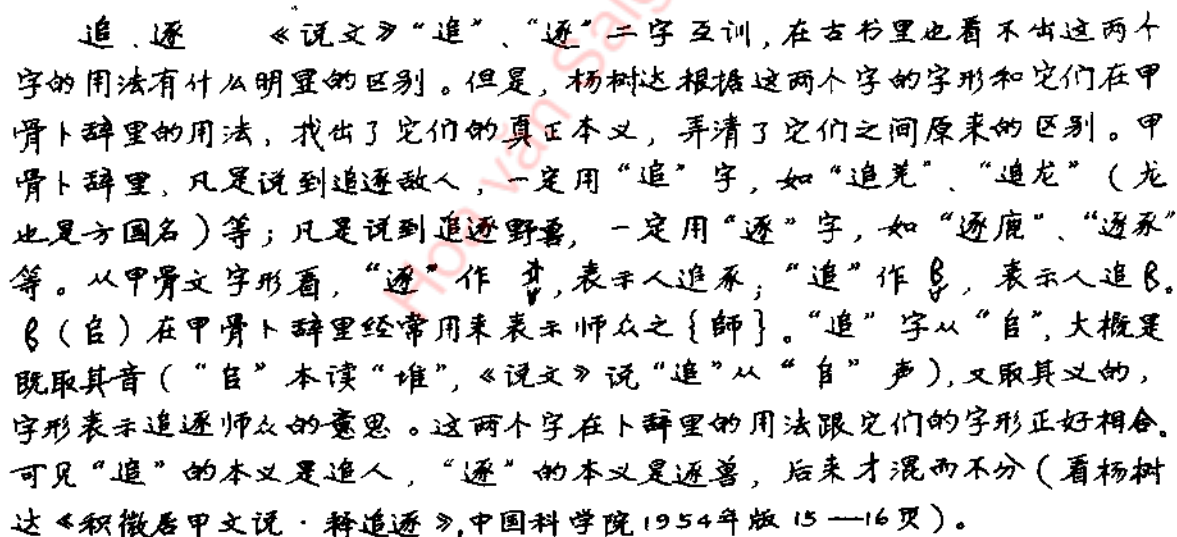 追、逐 《说文》“追”、“逐”二字互训,在古书里也看不出这两个
字的用法有什么明显的区别。但是,杨树达根据这两个字的字形和它们在甲
骨卜辞里的用法,找出了它们的真正本义,弄清了它们之间原来的区别。甲
骨卜辞里,凡是说到追逐敌人,一定用“追”字,如“追羌”、“追龙”(龙
也是方国名)等;凡是说到追逐野兽,一定用“逐”字,如“逐鹿”、“逐豕”
等。从甲骨文字形看,“逐”作 ,表示人追豕;“追”作 ,表示人追𠂤。
𠂤(𠂤)在甲骨卜辞里经常用来表示师众之{師}。“追”字从“𠂤”,大概是
既取其音(“𠂤”本读“堆”,《说文》说“追”从“𠂤”声),又取其义的,
字形表示追逐师众的意思。这两个字在卜辞里的用法跟它们的字形正好相合。
可见“追”的本义是追人,“逐”的本义是逐兽,后来才混而不分(看杨树
达《积微居甲文说·释追逐》,中国科学院1954年版15—16页)。
Hoa văn Sai